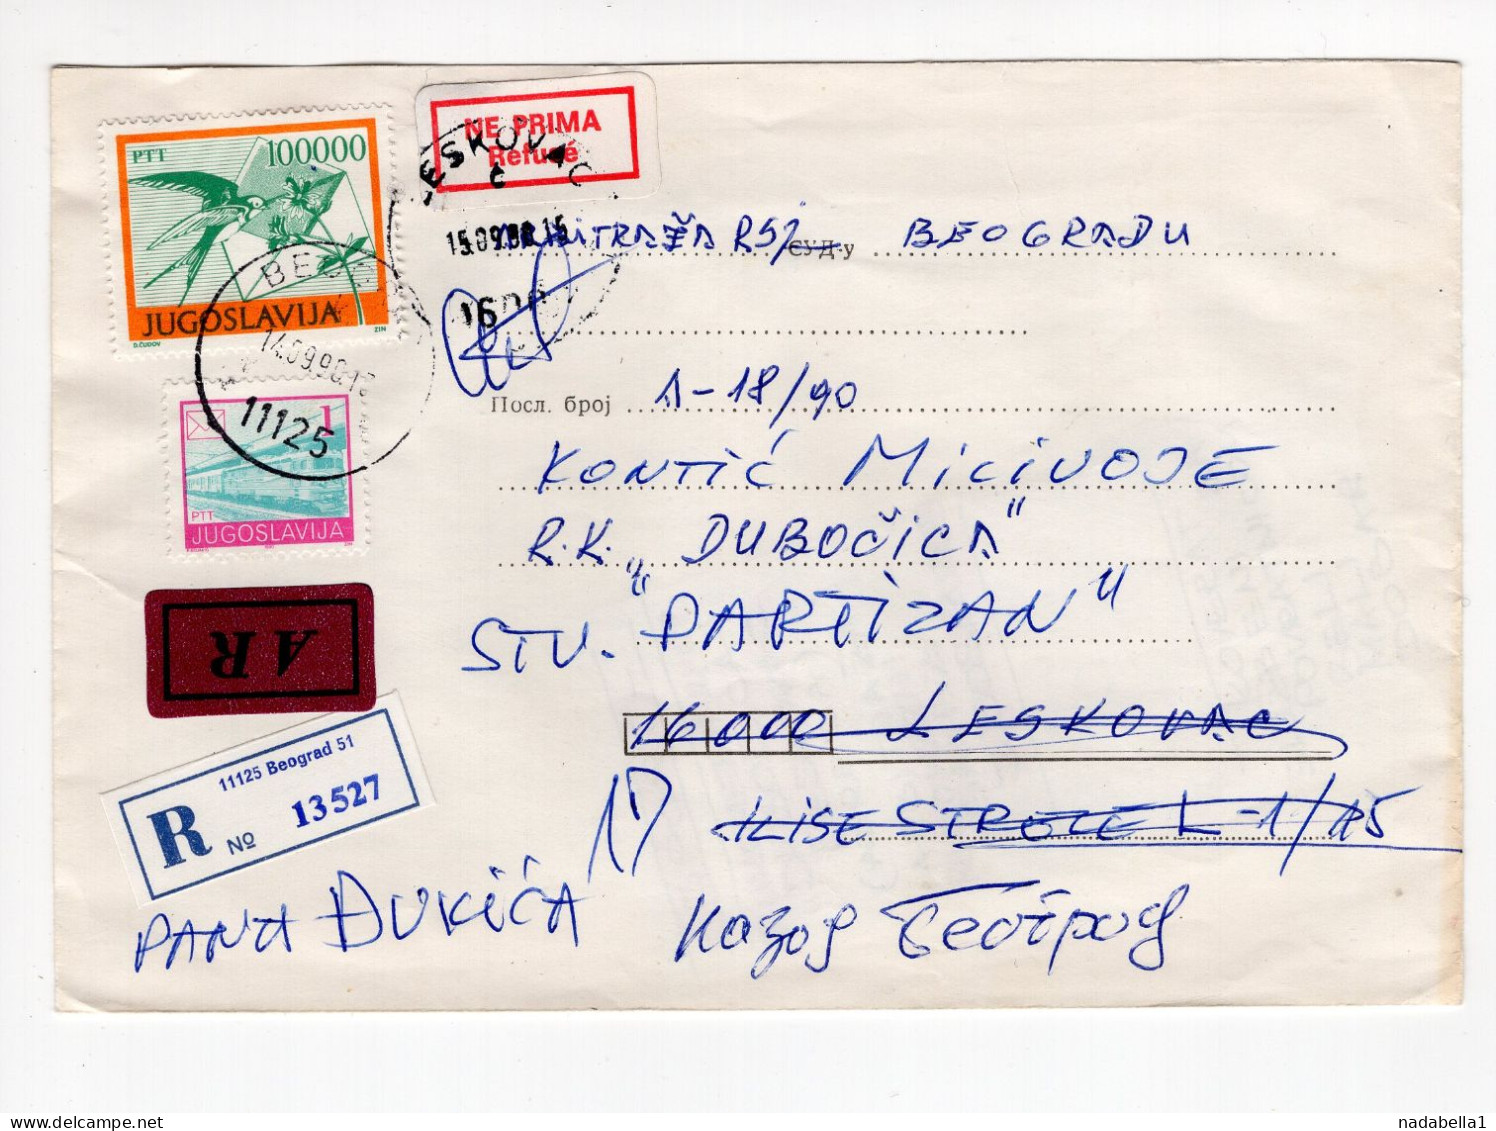 PTT 100000
JUGOSLAVIJA
D.ČUDOV ZIN
NE PRIMA
Refusé
LESKOVAC
č
15.09.90.15
1600
BEOG
14.09.90.1
11125
1
PTT
JUGOSLAVIJA
AR
11125 Beograd 51
R No 13527
ARBITRAŽA RSJ СУД-у BEOGRADU
Посл. број A-18/90
KONTIĆ MILIVOJE
R.K. „DUBOČICA"
STV. "PARTIZAN"
16000 LESKOVAC
ILISE STRELE L-1/15
PANA ĐUKIĆA 17
Назод Београд
nadabella1